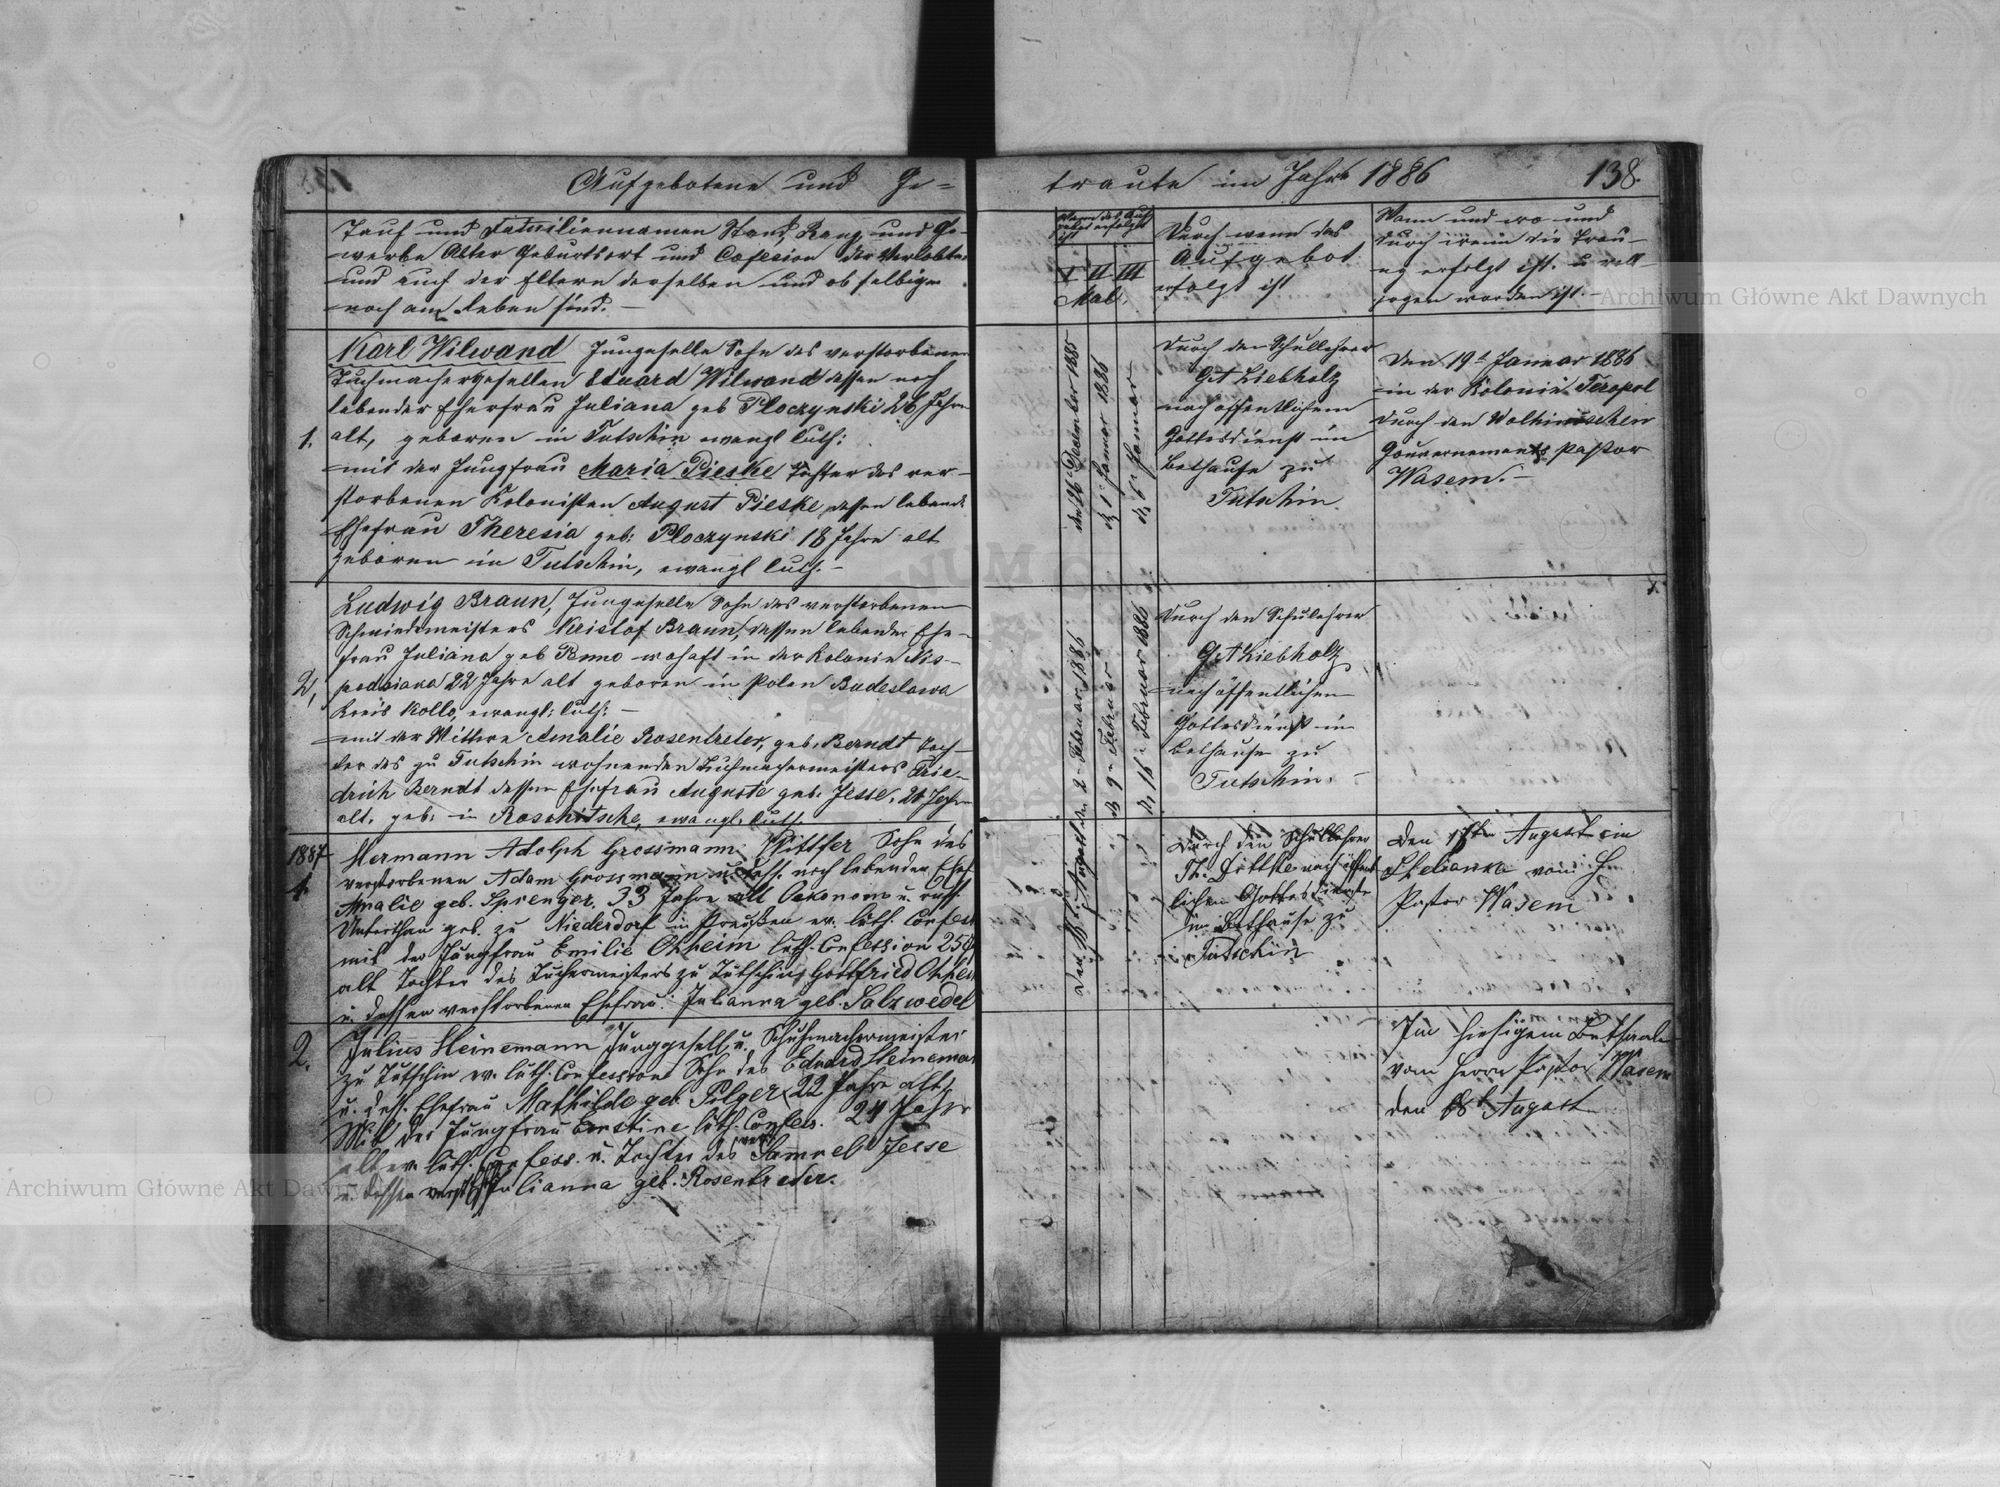 Aufgebotene und Ge-
traute im Jahre 1886
138.
Tauf und Familiennamen Stand, Rang und Ge-
werbe Alter Geburtsort und Cofesion der Verlobten
und auch der Eltern derselben und ob selbige
noch am Leben sind. —
Wann das Auf-
gebot erfolgt
ist
I II III
Mal.
Durch wenn das
Aufgebot
erfolgt ist
Wann und wo und
durch wenn die Trau-
ug erfolgt ist. u voll-
zogen worden ist. —
1.
Karl Wilwand Jungeselle Sohn des verstorbenen
Tuchmachergesellen Eduard Wilwand dessen noch
lebender Eherfrau Juliana geb Ploczynski 26 Jahre
alt, geboren in Tutschin evangl luth:
mit der Jungfrau Maria Pieske Tochter des ver-
storbenen Kolonisten August Pieske dessen lebende
Ehefrau Theresia geb: Ploczynski 18 Jahre alt
geboren in Tutschin, evangl luth. —
den 26 December 1885
d, 1 Januar 1886
d, 6 Januar
Durch den Schullehrer
G A Liebholz
nach öffentlichem
Gottesdienst im
Bethause zu
Tutschin
Den 19t Januar 1886
in der Kolonie Teropol
durch den Wolhinischen
Gouvernements Pastor
Wasem. —
2,
Ludwig Braun, Jungeselle Sohn des verstorbenen
Schmiedemeisters Kristof Braun, dessen lebender Ehe-
frau Juliana geb wohaft in der Kolonie Nis-
podziana 22 Jahre alt geboren in Polen Budeslawa
Kreis Kollo, evangl: luth: —
mit der Wittwe Amalie Rosentreter, geb. Berndt Toch-
ter des zu Tutschin wohnenden Tuchmachermeisters Frie-
drich Berndt dessen Ehefrau Auguste geb. Jesse, Jahre
alt, geb: in Roschitsche, evangl. luth.
2 Februar 1886
d 9 Februar
d, 16 Februar 1886
Durch den Schulehrer
G A Liebholz
nach öffentlichen
Gottesdienst in
Bethause zu
Tutschin. —
1887
1.
Hermann Adolph Grossmann Wittfer Sohn des
verstorbenen Adam Grossmann u. dess. noch lebenden Ehef.
Amalie geb. Sprenger, 33 Jahre alt Oekonom u.
Unterthan geb. zu Niederdorf in Preußen ev. luth. Confess
mit der Jungfrau Emilie Ohheim luth. Confession
alt Tochter des Tuchermeisters zu Tutschin Gottfried
u. dessen verstorbenen Ehefrau: Julianna geb. Salzwedel
Durch den Schullehrer
Th. Dittke nach öffent
lichen Gottesdienste
im Bethause zu
Tutschin
Den August im
vom H.
Pastor Wasem
2.
Julius Heinemann Junggesell u. Schuhmachermeister
zu Tutschin ev. luth. Confession Sohn des Eduard Heineman
u. dess. Ehefrau Mathilde geb. Pilger, 22 Jahre alt,
Mit der Jungfrau Ernstine luth. Confess. 24 Jahre
alt ev. luth. Confess. u. Tochter des Samuel Jesse
u. dessen verst. Julianna geb. Rosentreder.
Im hiesigem Bethsaale
vom Herrn Pastor Wasem
den 18t August
Archiwum Główne Akt Dawnych
Archiwum Główne Akt Dawnych